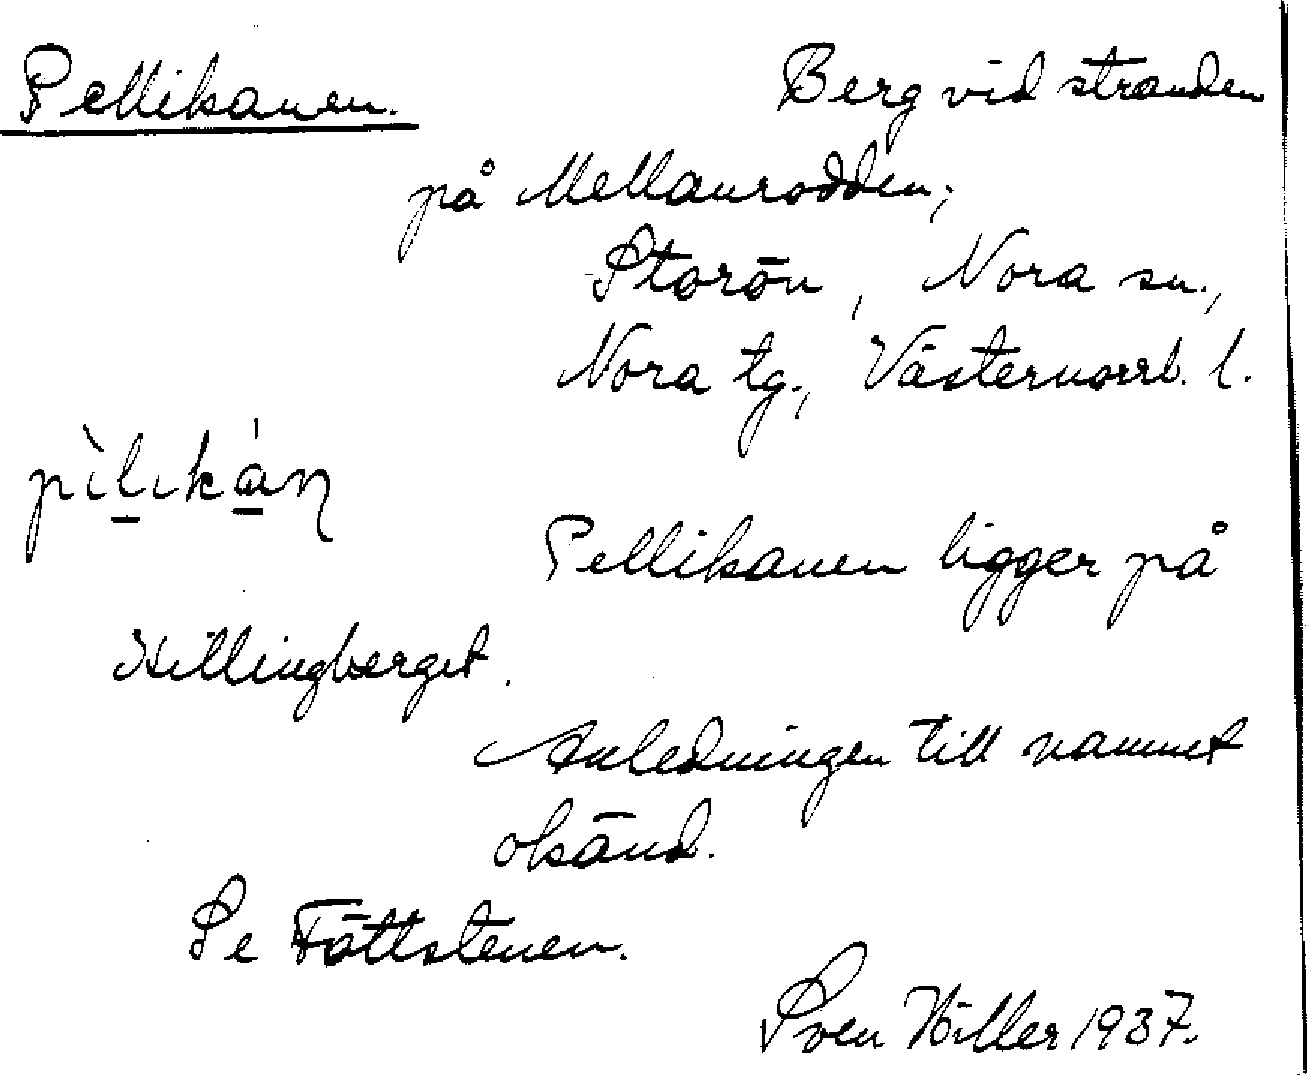 Pellikanen. Berg vid stranden
på Mellanrodden,
Storön, Nora sn.,
Nora tg., Västernorrl. l.
pìlikán
Pellikanen ligger på
Killingberget.
Anledningen till namnet
okänd.
Se Fättstenen.
Sven Hiller 1937.